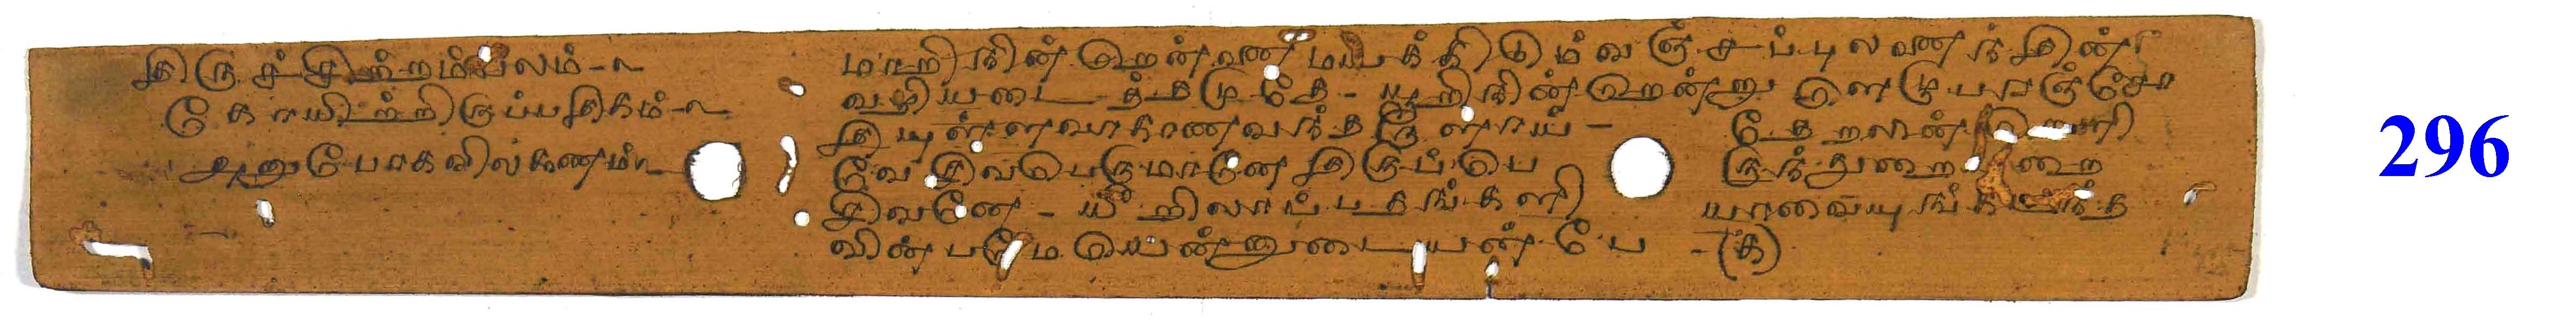 திருச்சிற்றம்பலம் - உ
கோயிற்றிருப்பதிகம் - உ
அனுபோகவிலக்கணம் உ
மாறிநின்றென்னை மயக்கிடும்வஞ்சப்புலனைந்தின்
வழியடைத்தமுதே - யூறிநின்றென்னு ளெழுபரஞ்சோ
தியுள்ளவாகாணவந்தருளாய் - தேறலின்றெளி
வேசிவபெருமானே திருப்பெ ருந்துறையுறை
சிவனே - யீறிலாப்பதங்களி யாவையுங்கடந்த
வின்பமே யென்னுடையன்பே - (க)
296